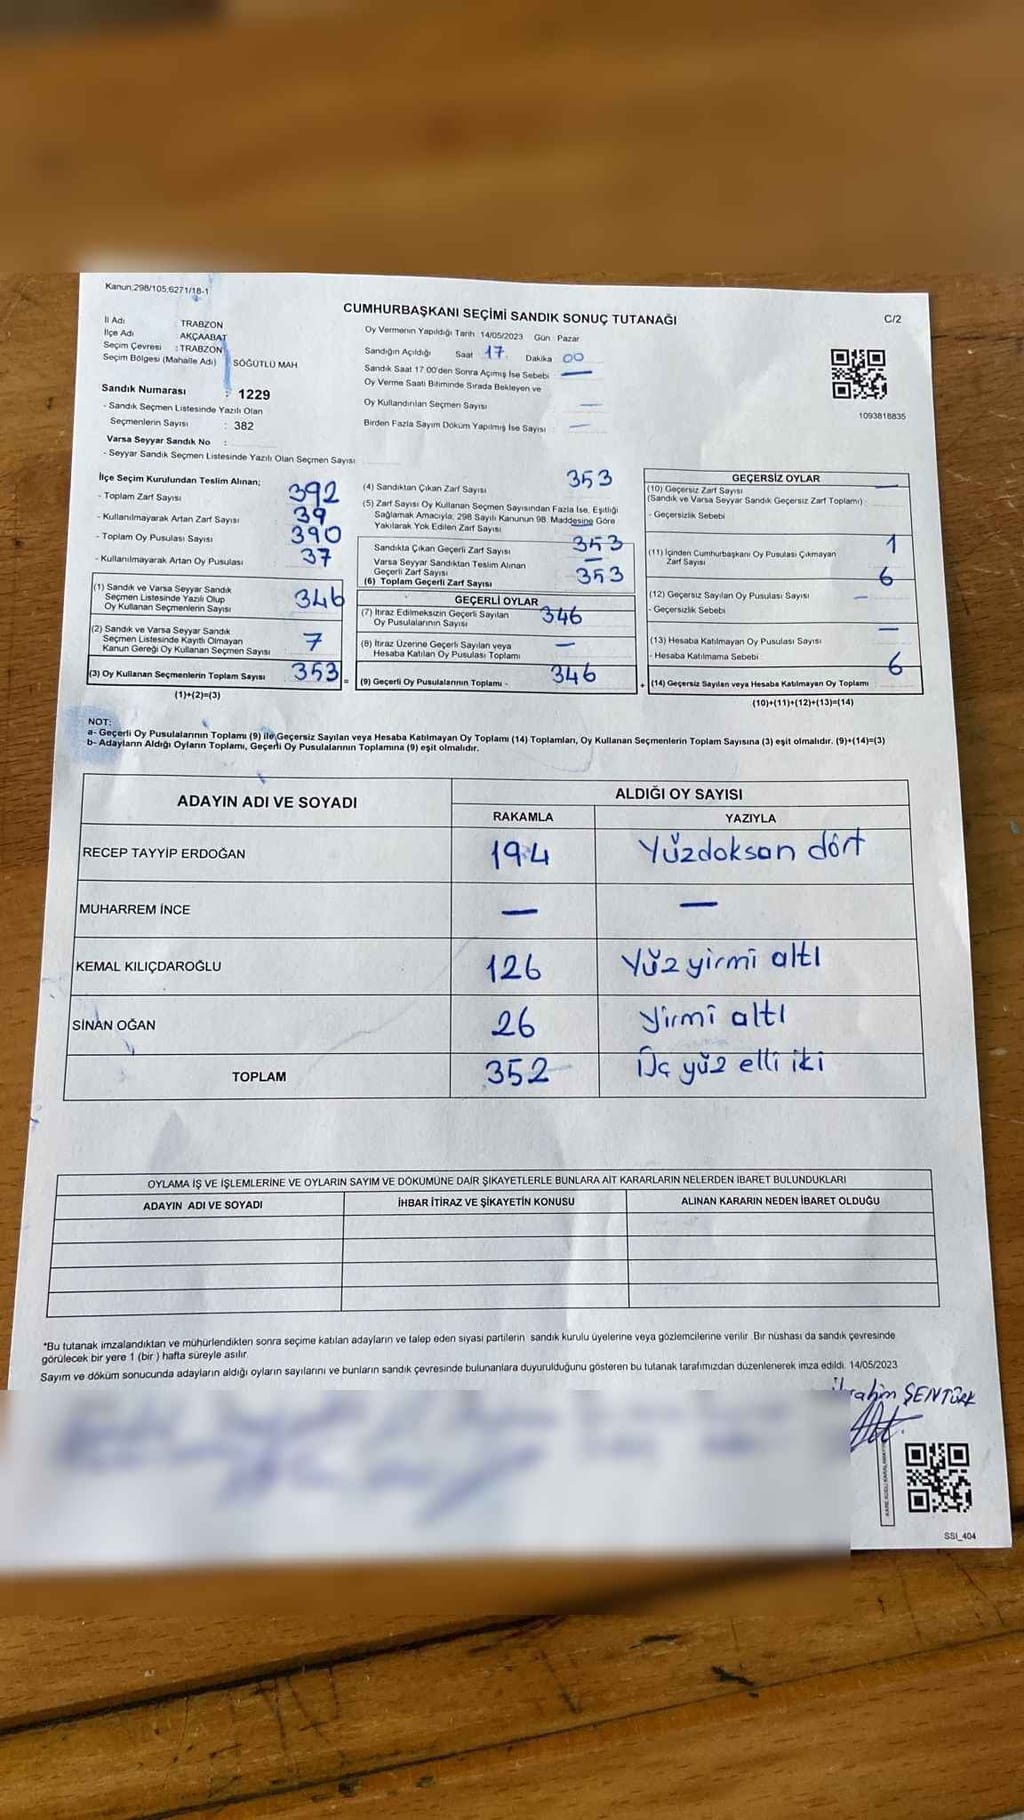 Kanun,298/105,6271/18-1
CUMHURBAŞKANI SEÇİMİ SANDIK SONUÇ TUTANAĞI
C/2
İl Adı : TRABZON
İlçe Adı AKÇAABAT
Seçim Çevresi : TRABZON
Seçim Bölgesi (Mahalle Adı) SÖĞÜTLÜ MAH
Sandık Numarası : 1229
- Sandık Seçmen Listesinde Yazılı Olan
Seçmenlerin Sayısı : 382
Varsa Seyyar Sandık No :
- Seyyar Sandık Seçmen Listesinde Yazılı Olan Seçmen Sayısı
Oy Vermenin Yapıldığı Tarih 14/05/2023 Gün Pazar
Sandığın Açıldığı Saat 17 Dakika 00
Sandık Saat 17 00'den Sonra Açımış İse Sebebi —
Oy Verme Saati Bitiminde Sırada Bekleyen ve
Oy Kullandırılan Seçmen Sayısı —
Birden Fazla Sayım Döküm Yapılmış İse Sayısı —
1093818835
İlçe Seçim Kurulundan Teslim Alınan;
- Toplam Zarf Sayısı 392
- Kullanılmayarak Artan Zarf Sayısı 39
- Toplam Oy Pusulası Sayısı 390
- Kullanılmayarak Artan Oy Pusulası 37
(1) Sandık ve Varsa Seyyar Sandık
Seçmen Listesinde Yazılı Olup
Oy Kullanan Seçmenlerin Sayısı 346
(2) Sandık ve Varsa Seyyar Sandık
Seçmen Listesinde Kayıtlı Olmayan
Kanun Gereği Oy Kullanan Seçmen Sayısı 7
(3) Oy Kullanan Seçmenlerin Toplam Sayısı 353 =
(1)+(2)=(3)
(4) Sandıktan Çıkan Zarf Sayısı 353
(5) Zarf Sayısı Oy Kullanan Seçmen Sayısından Fazla İse, Eşitliği
Sağlamak Amacıyla, 298 Sayılı Kanunun 98. Maddesine Göre
Yakılarak Yok Edilen Zarf Sayısı —
Sandıkta Çıkan Geçerli Zarf Sayısı 353
Varsa Seyyar Sandıktan Teslim Alınan
Geçerli Zarf Sayısı —
(6) Toplam Geçerli Zarf Sayısı 353
GEÇERLİ OYLAR
(7) İtiraz Edilmeksizin Geçerli Sayılan
Oy Pusulalarının Sayısı 346
(8) İtiraz Üzerine Geçerli Sayılan veya
Hesaba Katılan Oy Pusulası Toplamı —
(9) Geçerli Oy Pusulalarının Toplamı - 346 +
GEÇERSİZ OYLAR
(10) Geçersiz Zarf Sayısı —
(Sandık ve Varsa Seyyar Sandık Geçersiz Zarf Toplamı)
- Geçersizlik Sebebi
(11) İçinden Cumhurbaşkanı Oy Pusulası Çıkmayan
Zarf Sayısı 1
(12) Geçersiz Sayılan Oy Pusulası Sayısı 6
- Geçersizlik Sebebi —
(13) Hesaba Katılmayan Oy Pusulası Sayısı —
- Hesaba Katılmama Sebebi
(14) Geçersiz Sayılan veya Hesaba Katılmayan Oy Toplamı 6
(10)+(11)+(12)+(13)=(14)
NOT:
a- Geçerli Oy Pusulalarının Toplamı (9) ile Geçersiz Sayılan veya Hesaba Katılmayan Oy Toplamı (14) Toplamları, Oy Kullanan Seçmenlerin Toplam Sayısına (3) eşit olmalıdır. (9)+(14)=(3)
b- Adayların Aldığı Oyların Toplamı, Geçerli Oy Pusulalarının Toplamına (9) eşit olmalıdır.
ADAYIN ADI VE SOYADI ALDIĞI OY SAYISI
RAKAMLA YAZIYLA
RECEP TAYYİP ERDOĞAN 194 Yüzdoksan dört
MUHARREM İNCE — —
KEMAL KILIÇDAROĞLU 126 Yüz yirmi altı
SİNAN OĞAN 26 Yirmi altı
TOPLAM 352 Üç yüz elli iki
OYLAMA İŞ VE İŞLEMLERİNE VE OYLARIN SAYIM VE DÖKÜMÜNE DAİR ŞİKAYETLERLE BUNLARA AİT KARARLARIN NELERDEN İBARET BULUNDUKLARI
ADAYIN ADI VE SOYADI İHBAR İTİRAZ VE ŞİKAYETİN KONUSU ALINAN KARARIN NEDEN İBARET OLDUĞU
*Bu tutanak imzalandıktan ve mühürlendikten sonra seçime katılan adayların ve talep eden siyasi partilerin sandık kurulu üyelerine veya gözlemcilerine verilir. Bir nüshası da sandık çevresinde
görülecek bir yere 1 (bir) hafta süreyle asılır.
Sayım ve döküm sonucunda adayların aldığı oyların sayılarını ve bunların sandık çevresinde bulunanlara duyurulduğunu gösteren bu tutanak tarafımızdan düzenlenerek imza edildi. 14/05/2023
İbrahim ŞENTÜRK
SSI_404